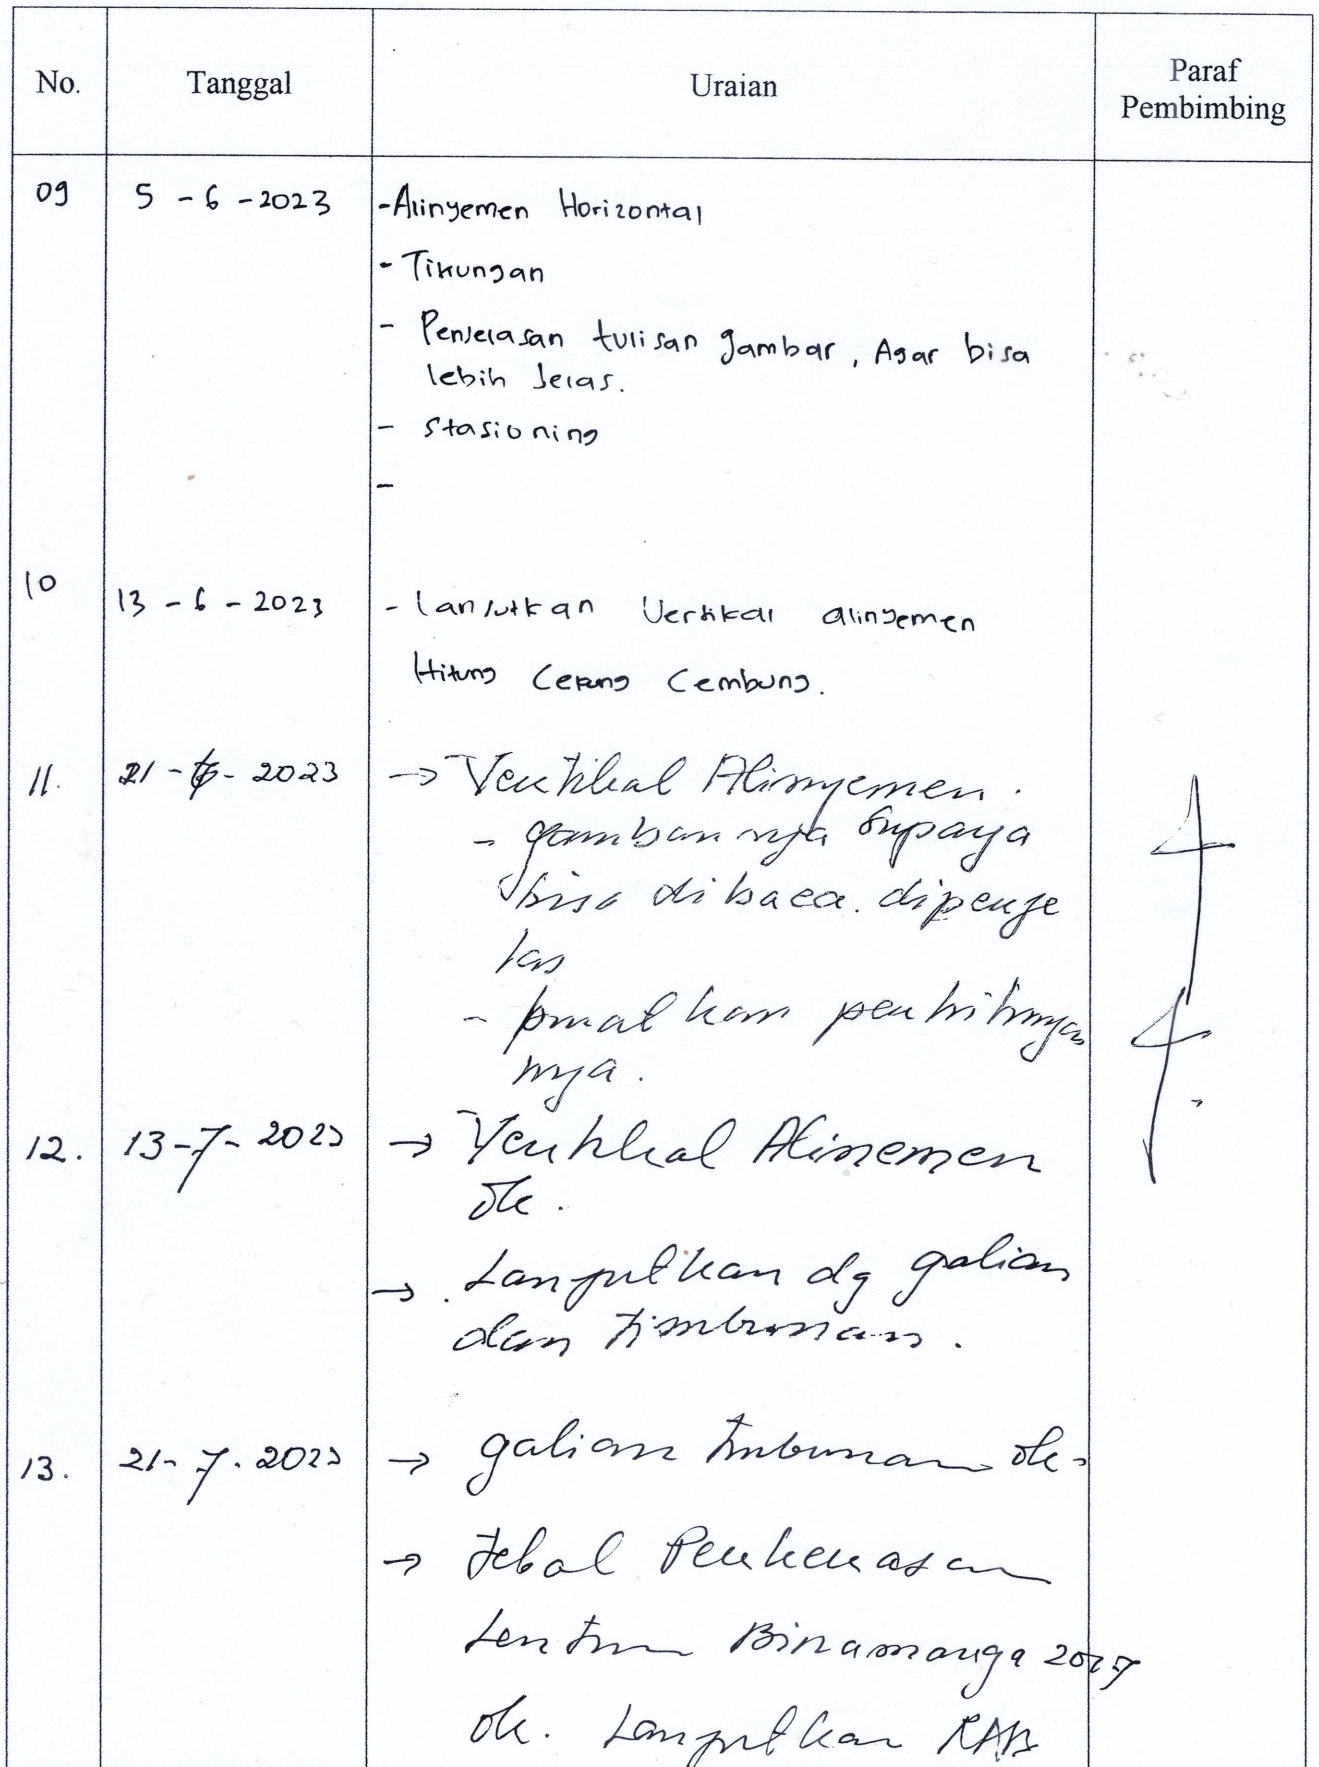 No. Tanggal Uraian Paraf Pembimbing
09 5 - 6 - 2023 - Alinyemen Horizontal
- Tikungan
- Penjelasan tulisan gambar, Agar bisa
lebih Jelas.
- Stasioning
-
10 13 - 6 - 2023 - lanjutkan Vertikal alinyemen
Hitung Cekung Cembung.
11. 21 - 6 - 2023 → Vertikal Alinyemen.
- gambarnya supaya
bisa dibaca. diperje
las
- buatkan perhitungan
nya.
12. 13 - 7 - 2023 → Vertikal Alinemen
ok.
→ . Lanjutkan dg galian
dan timbunan.
13. 21 - 7 - 2023 → galian timbunan ok.
→ tebal Perkerasan
Lentur Binamarga 2017
ok. Lanjutkan RAB